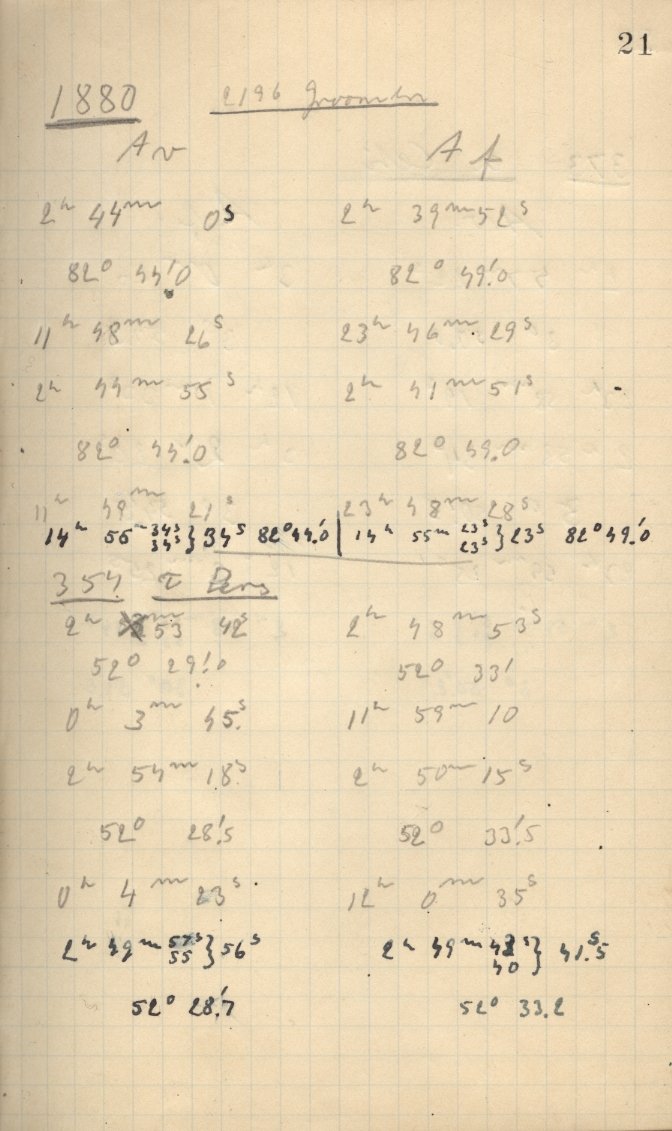 21
1880 2196 Groombr
Av Af
2h 44m 0s 2h 39m 52s
82° 44'.0 82° 49'.0
11h 48m 26s 23h 46m 29s
2h 44m 55s 2h 41m 51s
82° 44'.0 82° 49.0
11h 49m 21s 23h 48m 28s
14h 55m 34s 34s } 34s 82° 44'.0 | 14h 55m 23s 23s } 23s 82° 49'.0
354 τ Pers
2h 53 42s 2h 48m 53s
52° 29'.0 52° 33'
0h 3m 45s 11h 59m 10
2h 54m 18s 2h 50m 15s
52° 28'.5 52° 33'.5
0h 4m 23s 12h 0m 35s
2h 49m 57s 55 } 56s 2h 49m 43s 40 } 41.5s
52° 28'.7 52° 33.2